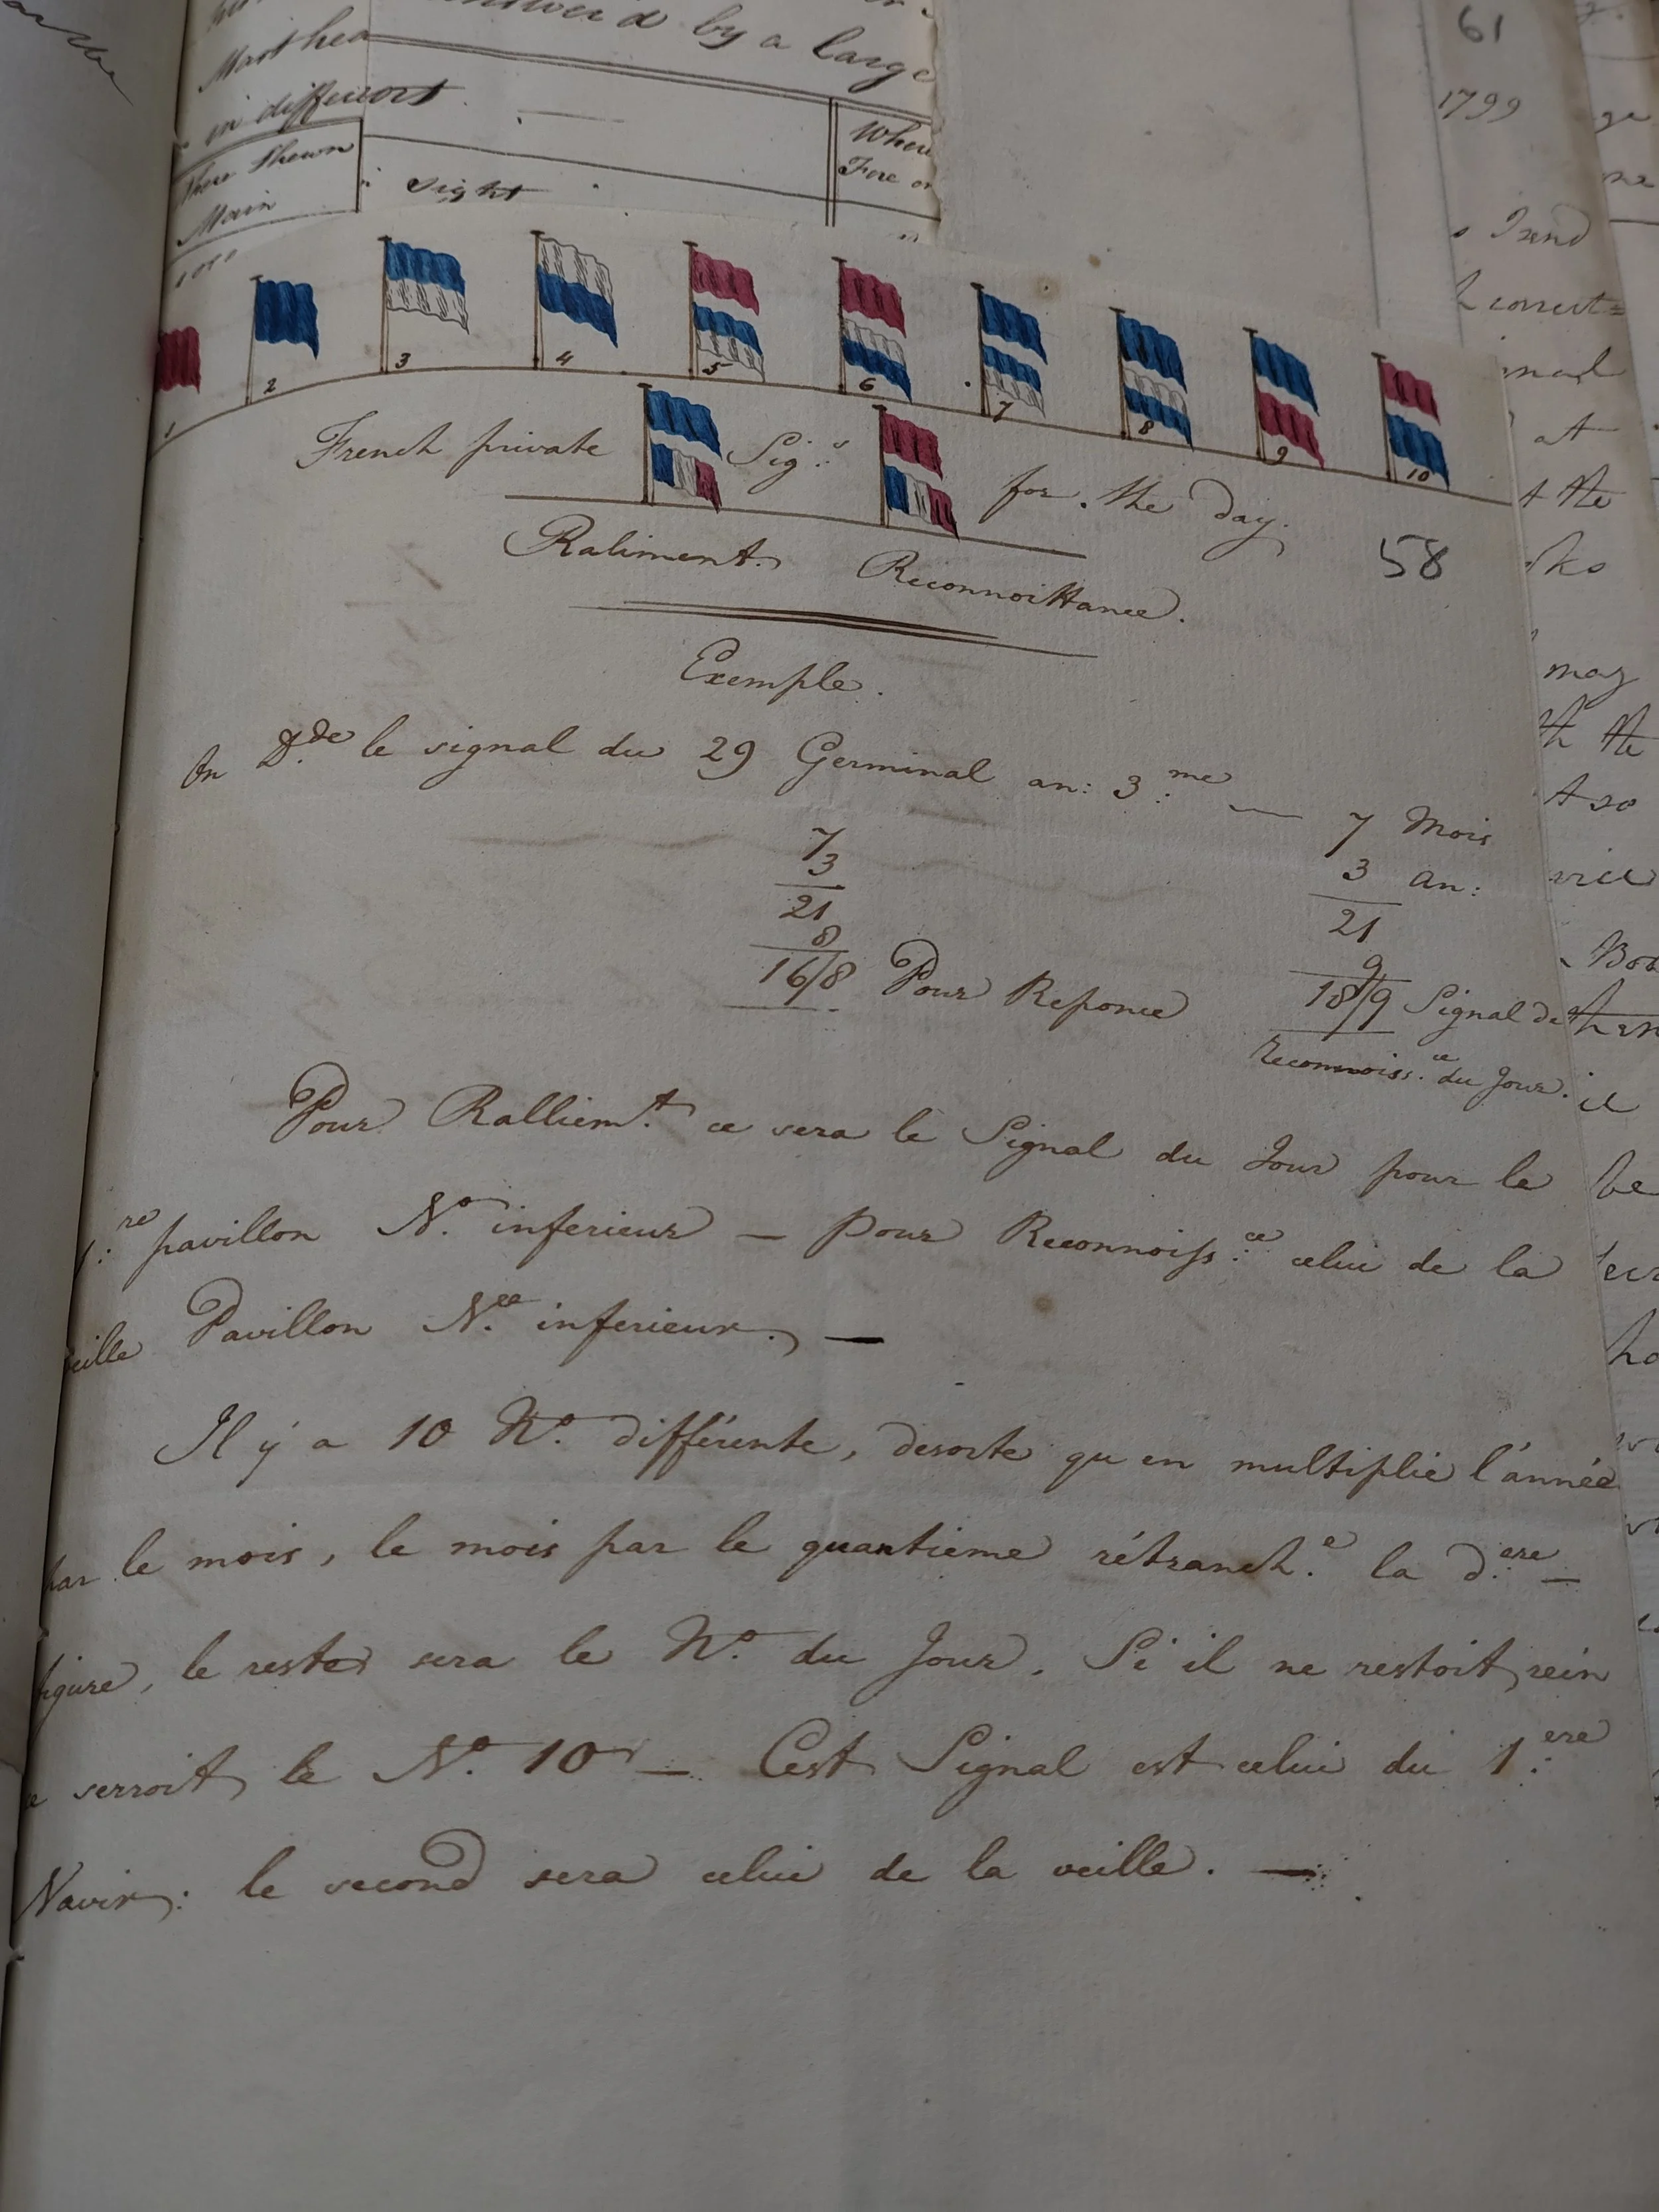 answer'd by a large
61
Mast hea
1799
in different
Where Shewn
Main
sight
When
Fore or
Send
correct=
1
2
3
4
5
6
7
8
9
10
at
French private Sig.s for the day.
the
58
Raliment. Reconnoittance.
Exemple.
may
On D.de le signal du 29 Germinal an: 3.me — 7 Mois
7
3
3 an:
21
21
8
9
16/8 Pour Reponce
18/9 Signal de
reconnoiss.ce du Jour.
Pour Ralliem.t ce sera le Signal du Jour pour le
1.re pavillon N.o inferieur — pour Reconnoiss.ce celui de la
veille Pavillon N.ee inferieur. —
Il y a 10 N.o différente, desorte qu en multiplie l'année
par le mois, le mois par le quantieme rétranch.e la d.ere —
figure, le reste sera le N.o du Jour. Si il ne restoit rein
ce serroit le N.o 10 — Cest Signal est celui du 1.ere
Navir: le second sera celui de la veille. —